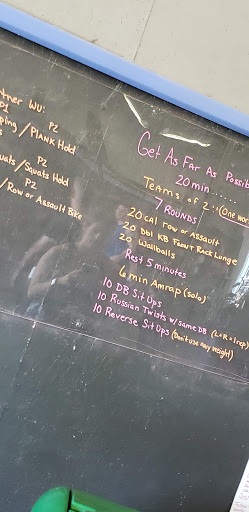 tner WU:
P1 P2
ping / Plank Hold
P2
uats / Squats Hold
P2
/ Row or Assault Bike
Get As Far As Possib
20 min......
Teams of 2:(One
7 Rounds
20 cal row or Assault
20 Dbl KB Front Rack Lunge
20 Wallballs
Rest 5 minutes
6 min Amrap (solo)
10 DB Sit Ups
10 Russian Twists w/ same DB (L+R=1rep)
10 Reverse Sit Ups (Don't use any weight)